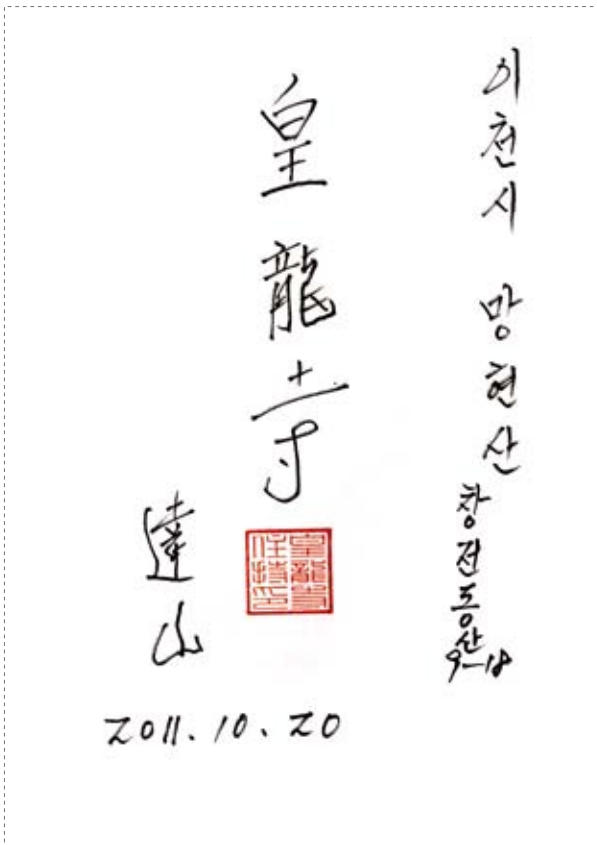 이천시 망현산
창전동산 9-18
皇龍寺
皇龍寺
住持印
達山
2011.10.20